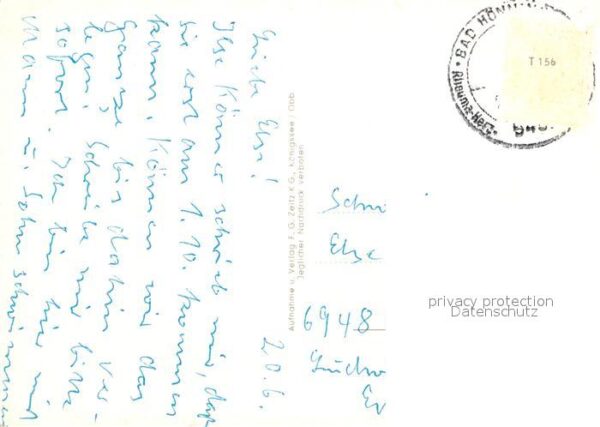 20.6.
Liebe Else!
Ilse Körner schrieb mir, daß
sie erst am 1.10. kommen
kann. Können wir das
ganze bis dahin ver-
legen? Schreibe mir bitte
sofort. Ich bin hier mit
Mann u. Sohn schwimmen
Aufnahme u. Verlag F. G. Zeitz K G., Königssee / Obb.
Jeglicher Nachdruck verboten
BAD HÖNN
Rheuma-Herz
T 156
Schw
Else
6948
privacy protection
Datenschutz